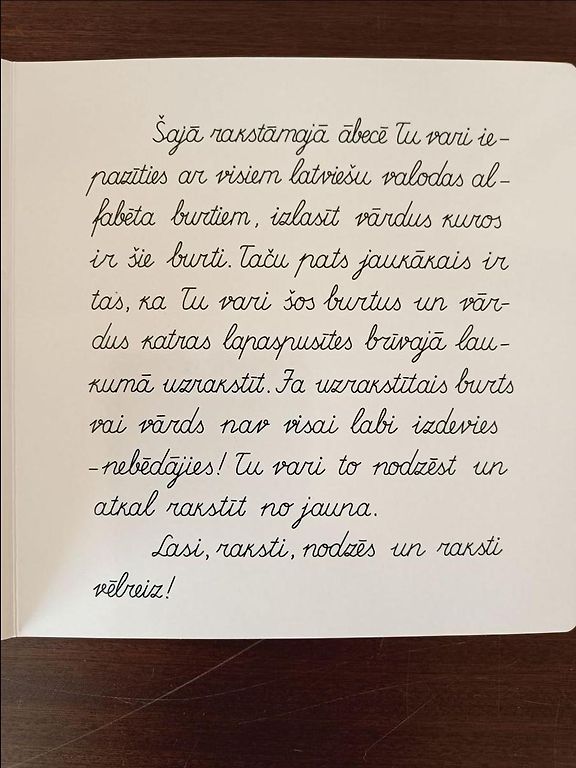 Šajā rakstāmajā ābecē Tu vari ie-
pazīties ar visiem latviešu valodas al-
fabēta burtiem, izlasīt vārdus kuros
ir šie burti. Taču pats jaukākais ir
tas, ka Tu vari šos burtus un vār-
dus katras lapaspusītes brīvajā lau-
kumā uzrakstīt. Ja uzrakstītais burts
vai vārds nav visai labi izdevies
-nebēdājies! Tu vari to nodzēst un
atkal rakstīt no jauna.
Lasi, raksti, nodzēs un raksti
vēlreiz!